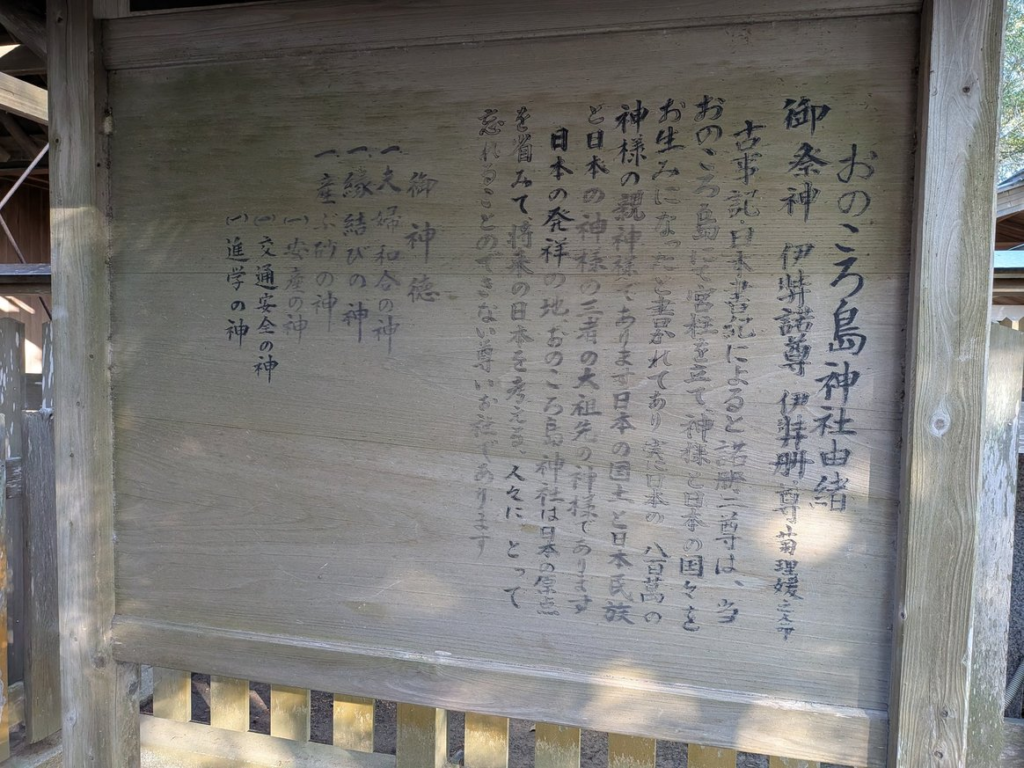 おのころ島神社由緒
御祭神 伊弉諾尊 伊弉册尊 菊理媛命
古事記日本書記によると諾册二尊は、当
おのころ島にて宮柱を立て神様と日本の国々を
お生みになったと書かれてあり実に日本の 八百萬の
神様の親神様であります日本の国土と日本民族
と日本の神様の三者の大祖先の神様であります
日本の発祥の地、おのころ島神社は日本の原点
を省みて、将来の日本を考える、人々に とって
忘れることのできない尊いお社であります
御神徳
一、夫婦和合の神
一、縁結びの神
一、産ぶ砂の神
(一) 安産の神
(一) 交通安全の神
(一) 進学の神